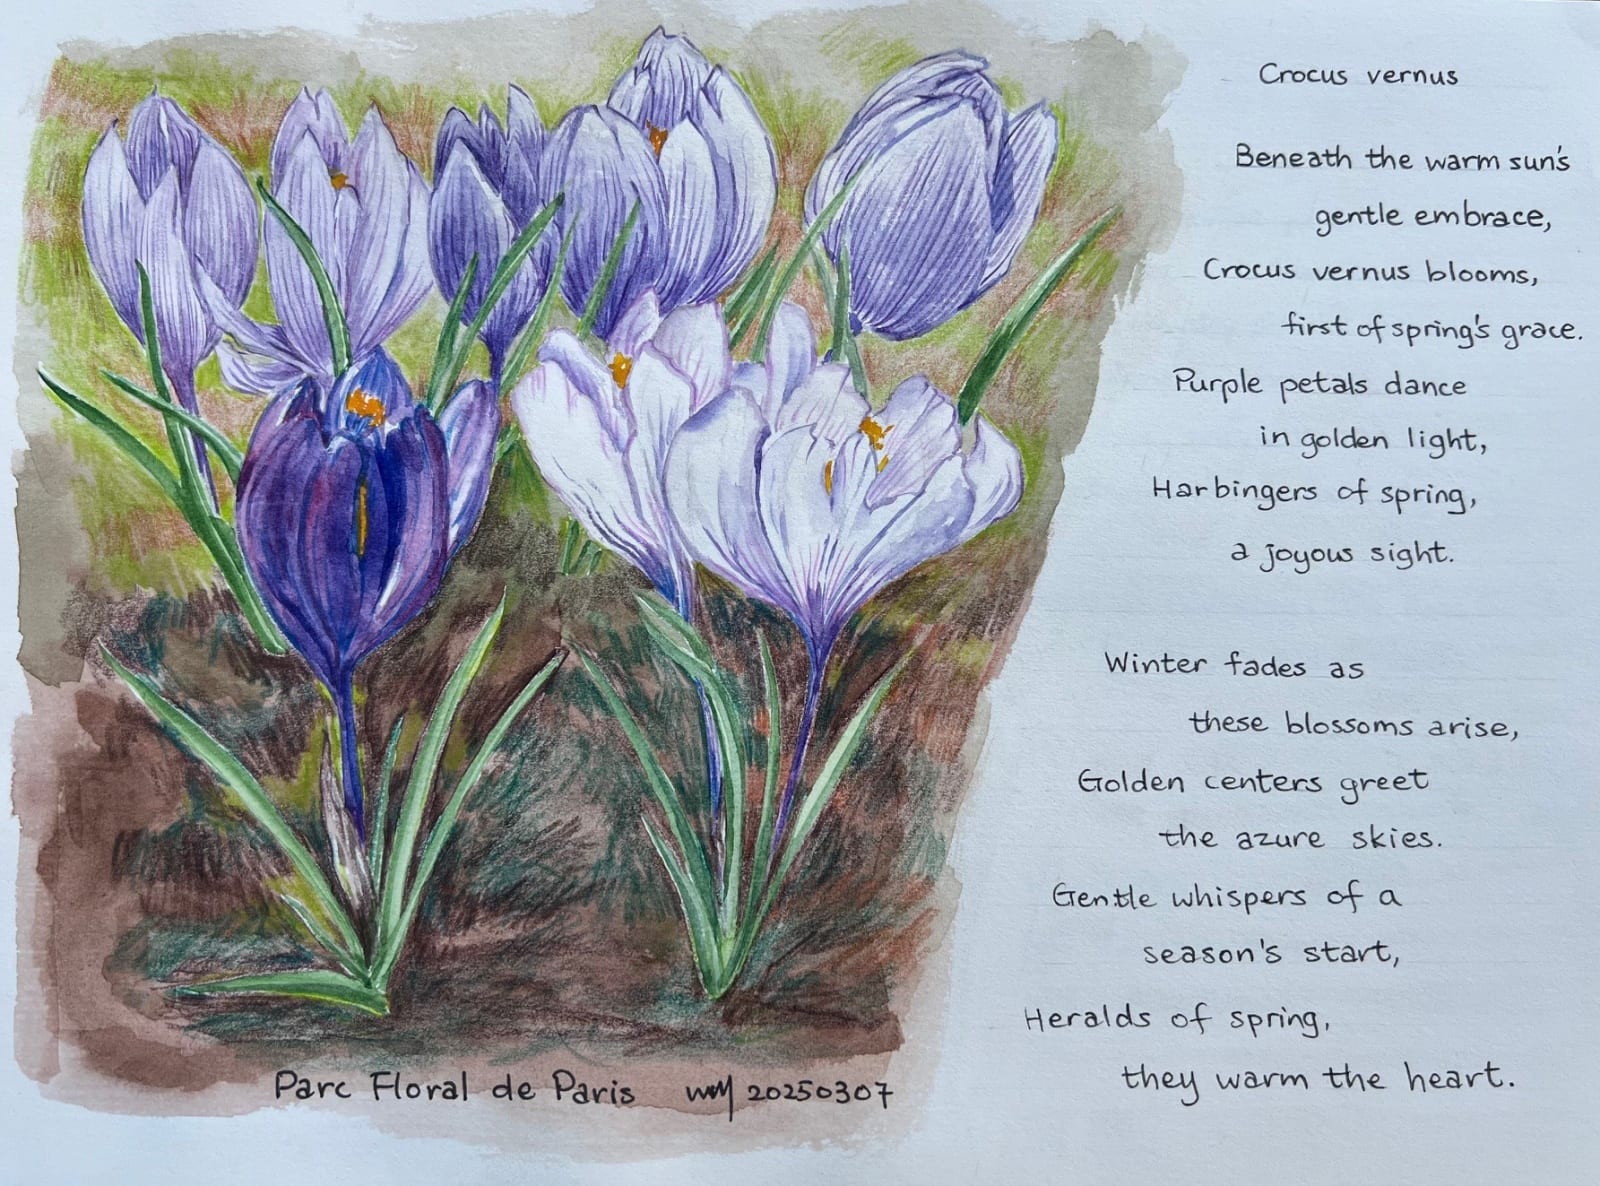 Crocus vernus
Beneath the warm sun's
gentle embrace,
Crocus vernus blooms,
first of spring's grace.
Purple petals dance
in golden light,
Harbingers of spring,
a joyous sight.
Winter fades as
these blossoms arise,
Golden centers greet
the azure skies.
Gentle whispers of a
season's start,
Heralds of spring,
they warm the heart.
Parc Floral de Paris 20250307